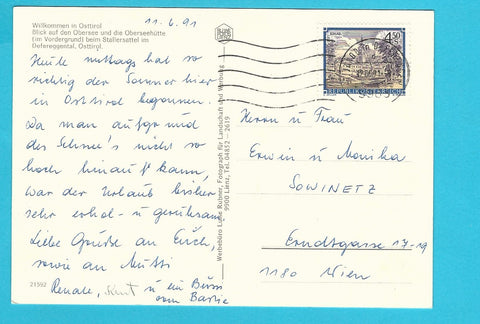 11.6.91
Willkommen in Osttirol
Blick auf den Obersee und die Oberseehütte
(im Vordergrund) beim Stallersattel im
Defereggental, Osttirol.
Heute mittags hat so
richtig der Sommer hier
in Osttirol begonnen.
Da man aufgrund
des Schnee's nicht so
hoch hinauf kann,
war der Urlaub bisher
sehr erhol- u geruhsam
Liebe Grüße an Euch,
sowie an Mutti
Renate, Kurt u ein Bussi
vom Bastie
21592
Werbebüro Liane Rubner, Fotograph für Landschaft und Werbung
9900 Lienz, Tel. 04852 - 2619
4.50
REPUBLIK ÖSTERREICH
Herrn u Frau
Erwin u Monika
SOWINETZ
Erndtgasse 17-19
1180 Wien